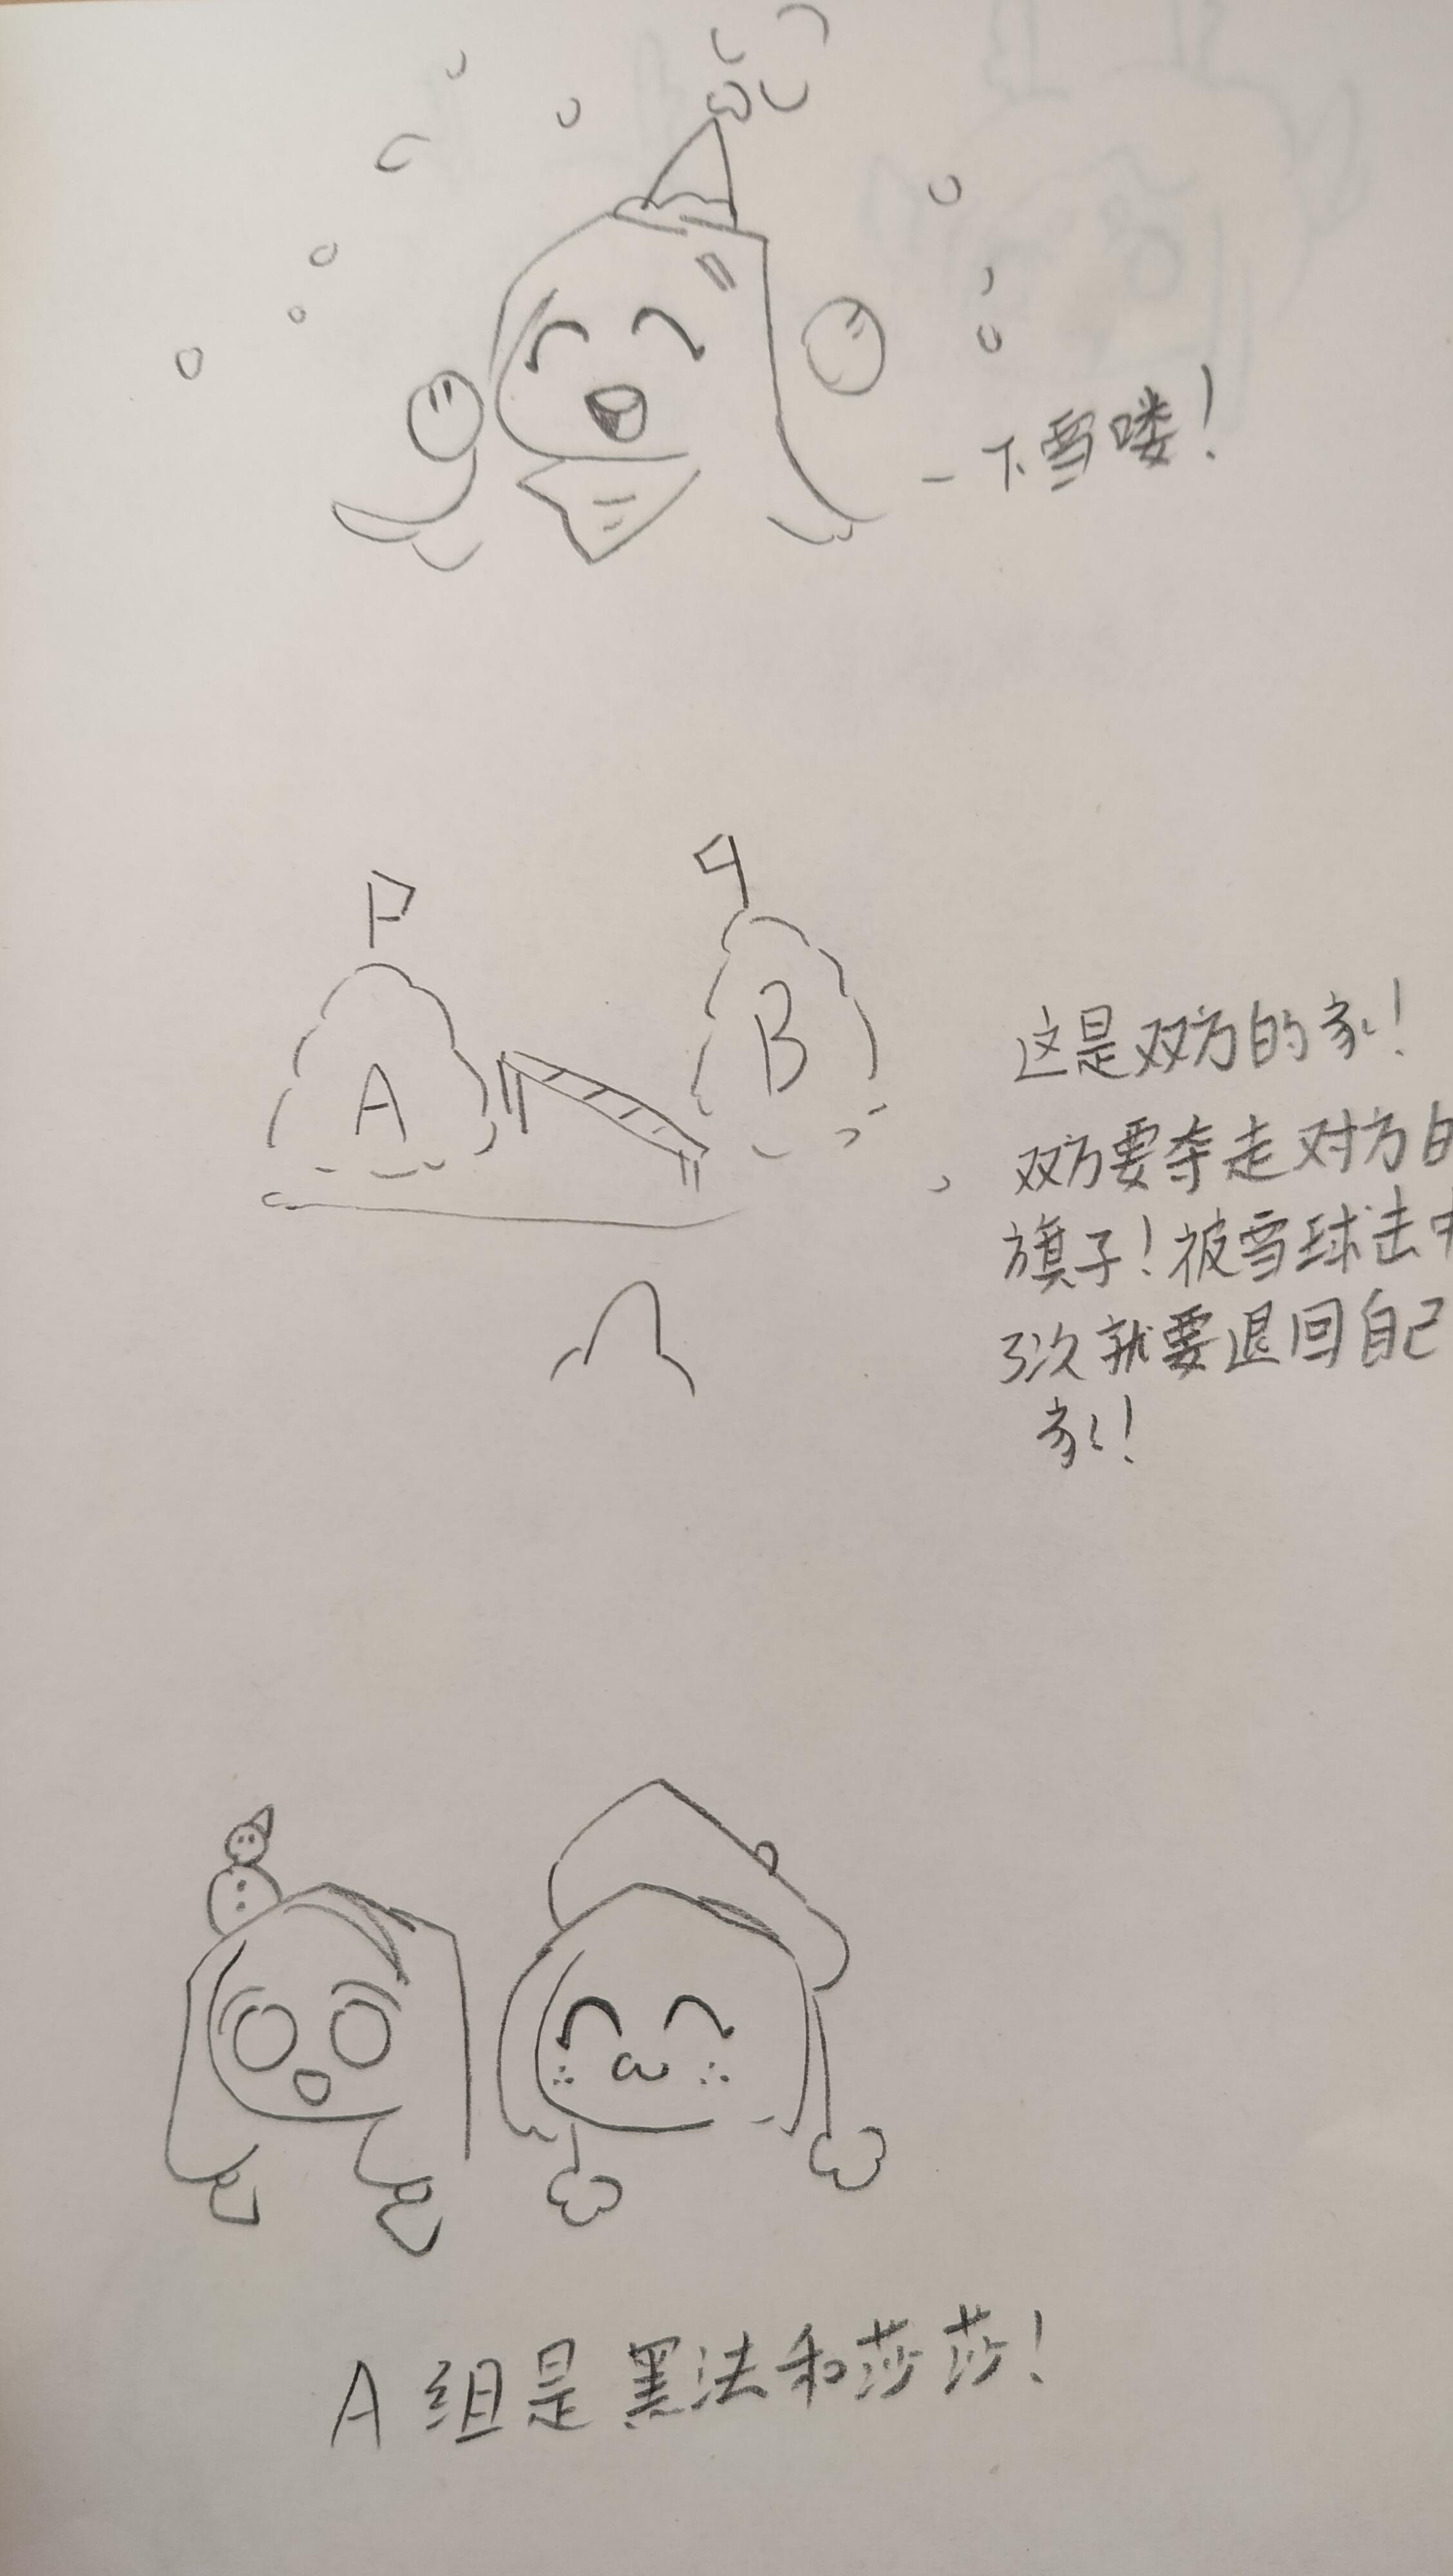 一下雪喽!
A
B
这是双方的家!
双方要夺走对方的
旗子!被雪球击中
3次就要退回自己
家!
A组是黑法和莎莎!